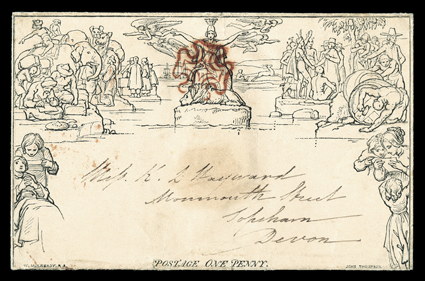 Miss K. L. Hayward
Monmouth Street
Topsham
Devon
POSTAGE ONE PENNY.
W. MULREADY, R.A.
JOHN THOMPSON